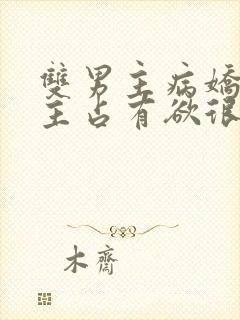 雙男主病嬌
主占有欲很
木齋